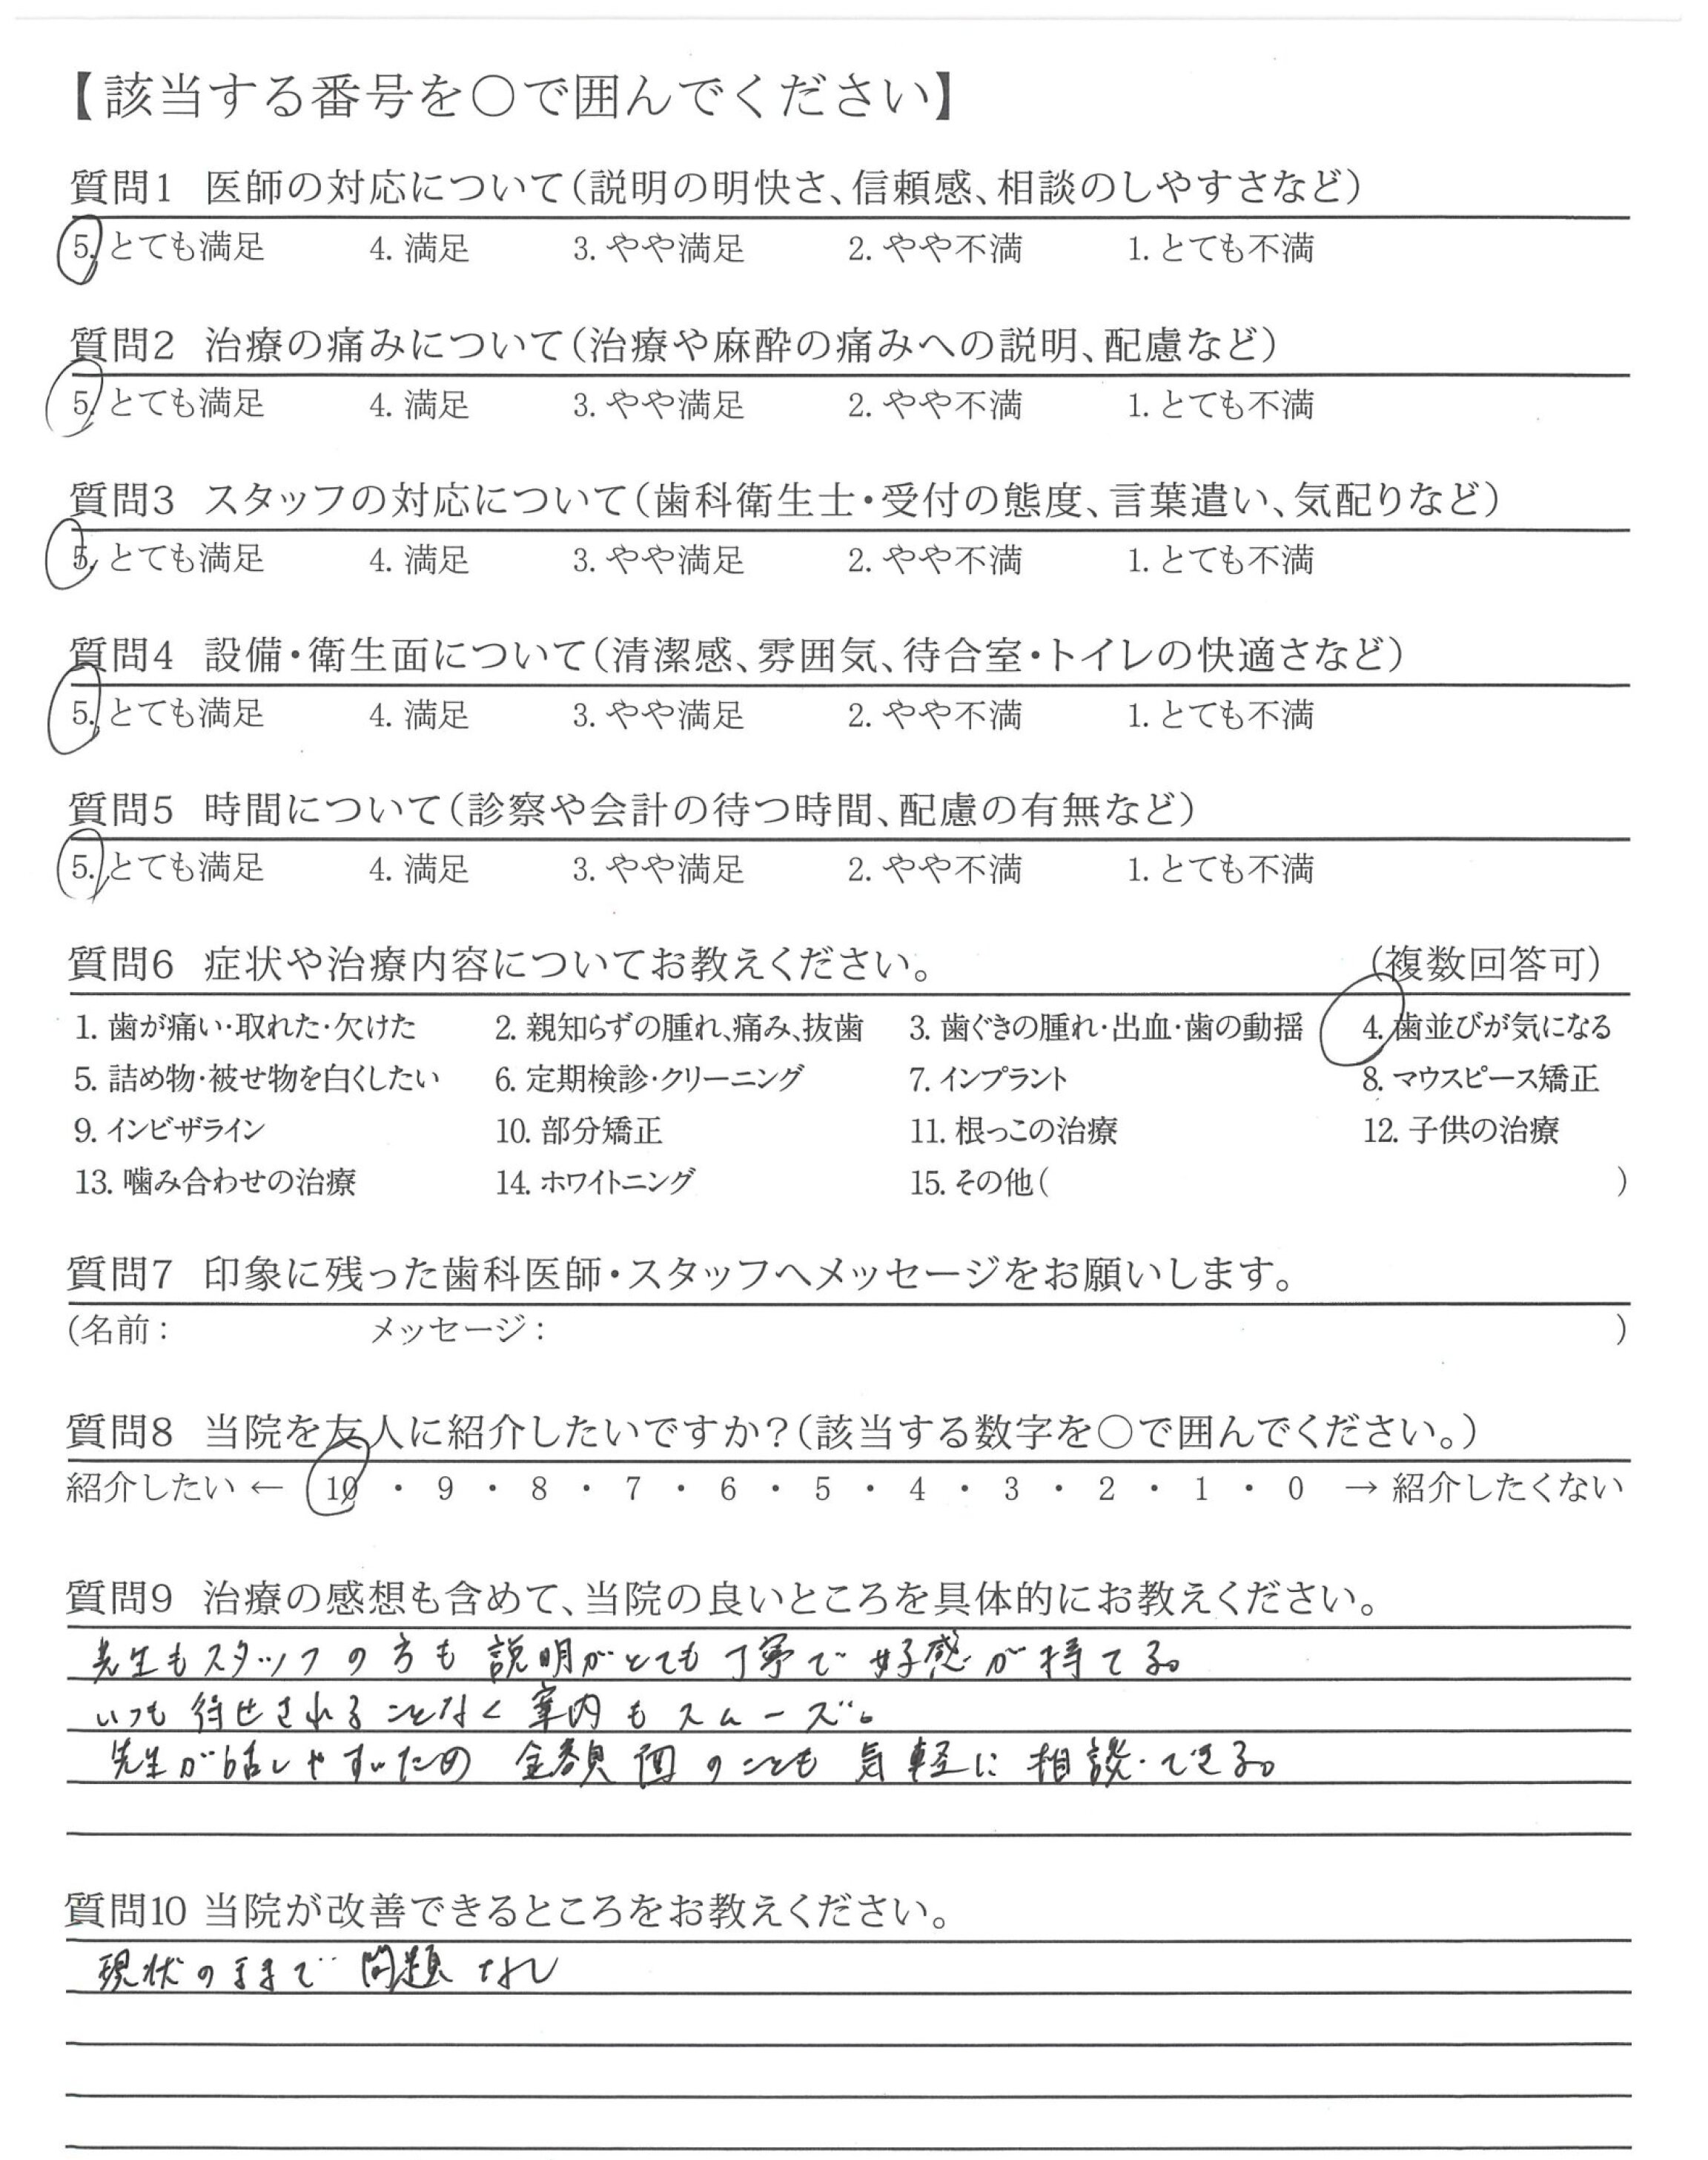 【該当する番号を○で囲んでください】
質問1 医師の対応について(説明の明快さ、信頼感、相談のしやすさなど)
5. とても満足 4. 満足 3. やや満足 2. やや不満 1. とても不満
質問2 治療の痛みについて(治療や麻酔の痛みへの説明、配慮など)
5. とても満足 4. 満足 3. やや満足 2. やや不満 1. とても不満
質問3 スタッフの対応について(歯科衛生士・受付の態度、言葉遣い、気配りなど)
5. とても満足 4. 満足 3. やや満足 2. やや不満 1. とても不満
質問4 設備・衛生面について(清潔感、雰囲気、待合室・トイレの快適さなど)
5. とても満足 4. 満足 3. やや満足 2. やや不満 1. とても不満
質問5 時間について(診察や会計の待つ時間、配慮の有無など)
5. とても満足 4. 満足 3. やや満足 2. やや不満 1. とても不満
質問6 症状や治療内容についてお教えください。 (複数回答可)
1. 歯が痛い・取れた・欠けた 2. 親知らずの腫れ、痛み、抜歯 3. 歯ぐきの腫れ・出血・歯の動揺 4. 歯並びが気になる
5. 詰め物・被せ物を白くしたい 6. 定期検診・クリーニング 7. インプラント 8. マウスピース矯正
9. インビザライン 10. 部分矯正 11. 根っこの治療 12. 子供の治療
13. 噛み合わせの治療 14. ホワイトニング 15. その他( )
質問7 印象に残った歯科医師・スタッフへメッセージをお願いします。
(名前: メッセージ: )
質問8 当院を友人に紹介したいですか?(該当する数字を○で囲んでください。)
紹介したい ← 10 ・ 9 ・ 8 ・ 7 ・ 6 ・ 5 ・ 4 ・ 3 ・ 2 ・ 1 ・ 0 → 紹介したくない
質問9 治療の感想も含めて、当院の良いところを具体的にお教えください。
先生もスタッフの方も説明がとても丁寧で好感が持てる。
いつも待せされることなく案内もスムーズ。
先生が話しやすいため金額面のことも気軽に相談できる。
質問10 当院が改善できるところをお教えください。
現状のままで問題なし